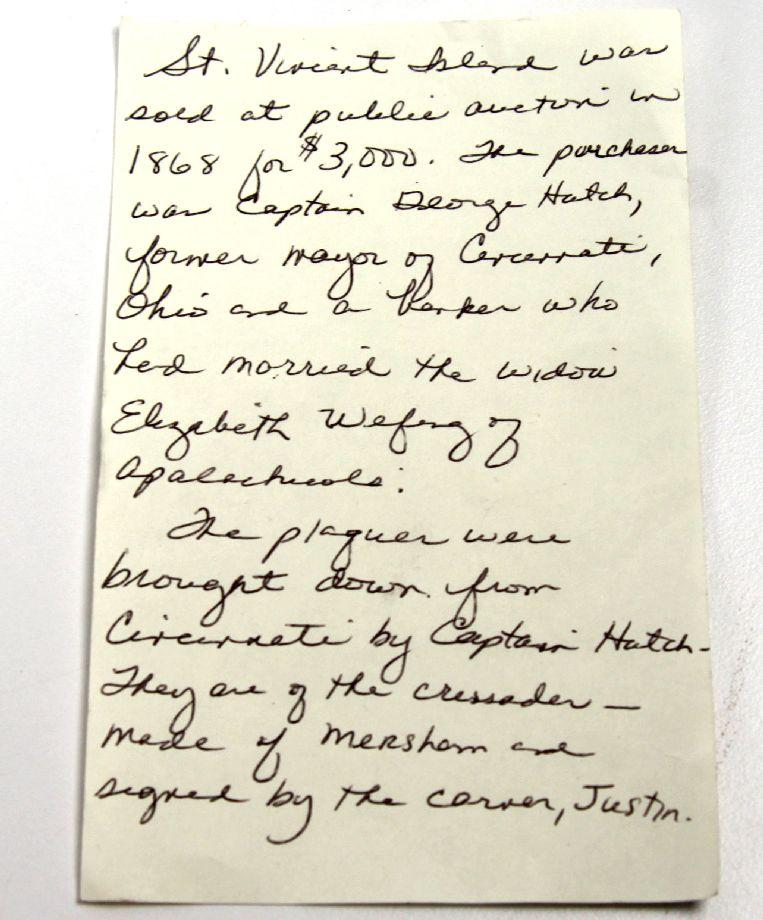 St. Vincent Island was
sold at public auction in
1868 for $3,000. The purchaser
was Captain George Hatch,
former mayor of Cincinnati,
Ohio and a banker who
had married the widow
Elizabeth Wefing of
Apalachicola.
The plaques were
brought down from
Cincinnati by Captain Hatch -
They are of the crussader —
made of Mersham and
signed by the carver, Justin.